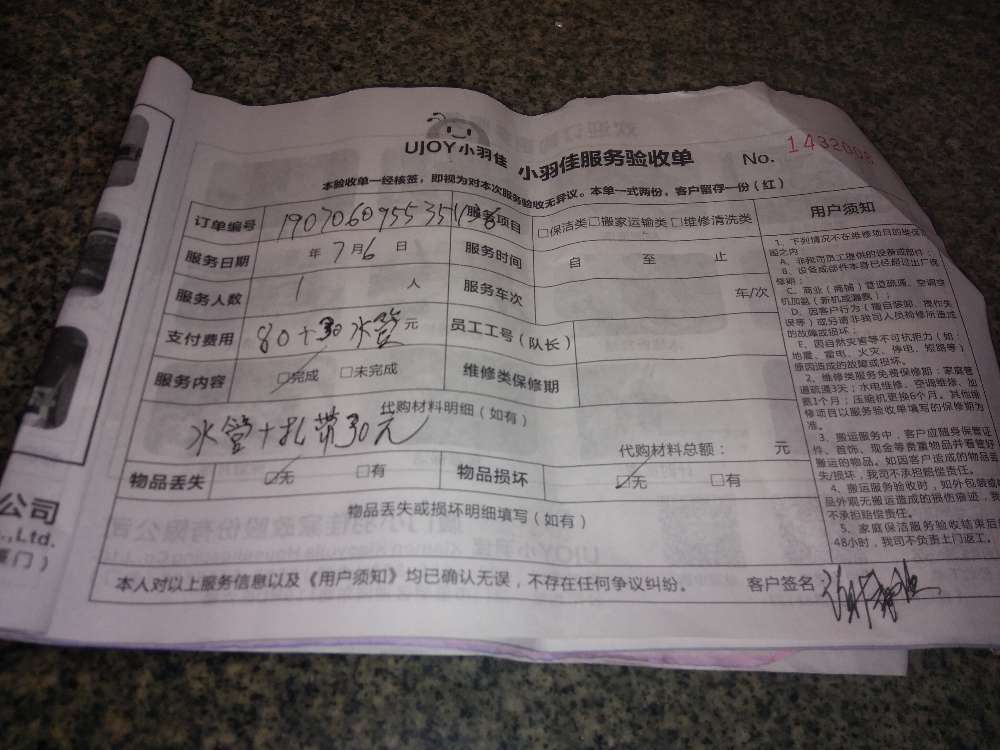 UJOY小羽佳 小羽佳服务验收单 No. 1432008
本验收单一经核签，即视为对本次服务验收无异议。本单一式两份，客户留存一份（红）
订单编号 服务项目 □保洁类□搬家运输类 □维修清洗类
服务日期 年 7 月 6 日 服务时间 自 至 止
服务人数 1 人 服务车次 车/次
支付费用 80+30水管 元 员工工号（队长）
服务内容 □完成 □未完成 维修类保修期
代购材料明细（如有）
水管+扎带30元
代购材料总额： 元
物品丢失 □无 □有 物品损坏 □无 □有
物品丢失或损坏明细填写（如有）
本人对以上服务信息以及《用户须知》均已确认无误，不存在任何争议纠纷。 客户签名
用户须知
1、下列情况不在维修项目的维保范
围之内
A、非我司员工提供的设备或部件
B、设备或部件本身已经超过出厂保
修期；
C、商业（商铺）管道疏通、空调空
机加氟（新机或漏氟）；
D、因客户行为（擅自装卸、操作失
误等）或另请非我司人员检修所造成
的故障或损坏；
E、因自然灾害等不可抗拒力（如：
地震、雷电、火灾、停电、短路等）
原因造成的故障或损坏。
2、维修类服务免费保修期：家庭管
道疏通3天；水电维修、空调维修、加
氟1个月；压缩机更换6个月。其他维
修项目以服务验收单填写的保修期为
准。
3、搬运服务中，客户应随身保管证
件、首饰、现金等贵重物品并看管好
搬运的物品。如因客户造成的物品丢
失/损坏，我司不承担赔偿责任。
4、搬运服务验收时，如外包装或
品外观无搬运造成的损伤痕迹，我
不承担赔偿责任。
5、家庭保洁服务验收结束后
48小时，我司不负责上门返工。
公司
.,Ltd.
厦门）